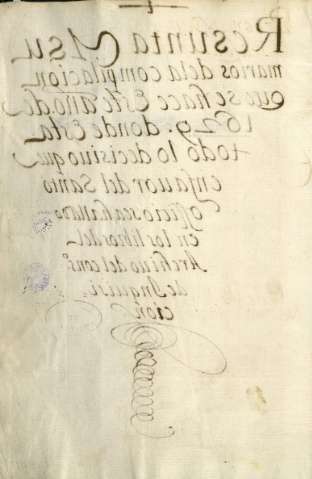 Resunta Y su
marios de la compilacion
que se hace Este año. de
1629. donde esta
todo lo decisiuo que
en fauor del Santo
Officio se a
en los libros del
Archiuo del cons.º
de Inquisi
cion